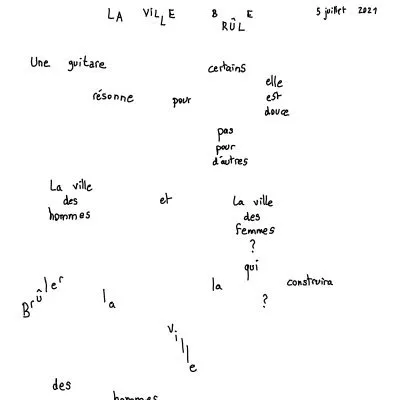 LA VILLE BRÛLE
5 juillet 2021
Une guitare
certains
résonne pour
elle
est
douce
pas
pour
d'autres
La ville
des
hommes
et
La ville
des
femmes
?
qui
la construira
?
Brûler la
ville
des
hommes